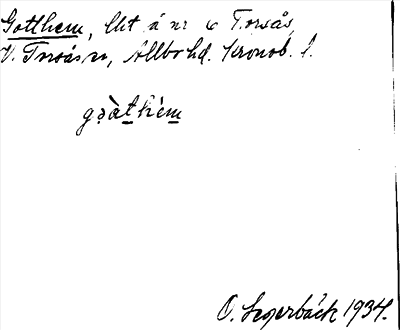 Gotthem, lht å nr 6 Torsås,
V. Torsås sn, Allbo hd. Kronob. l.
gɔ̀athèm
O. Segerbäck 1934.